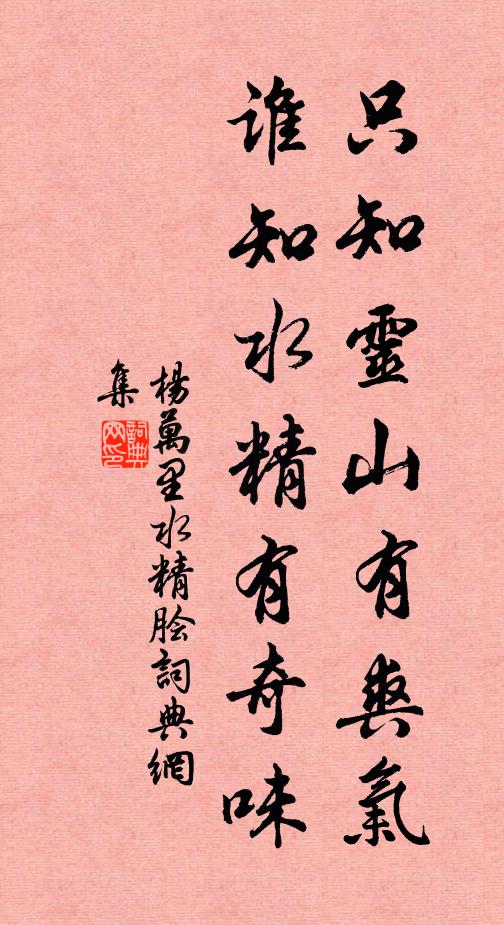 只知靈山有爽氣
誰知水精有奇味
楊萬里水精膾詞典網
集
詞典
网印